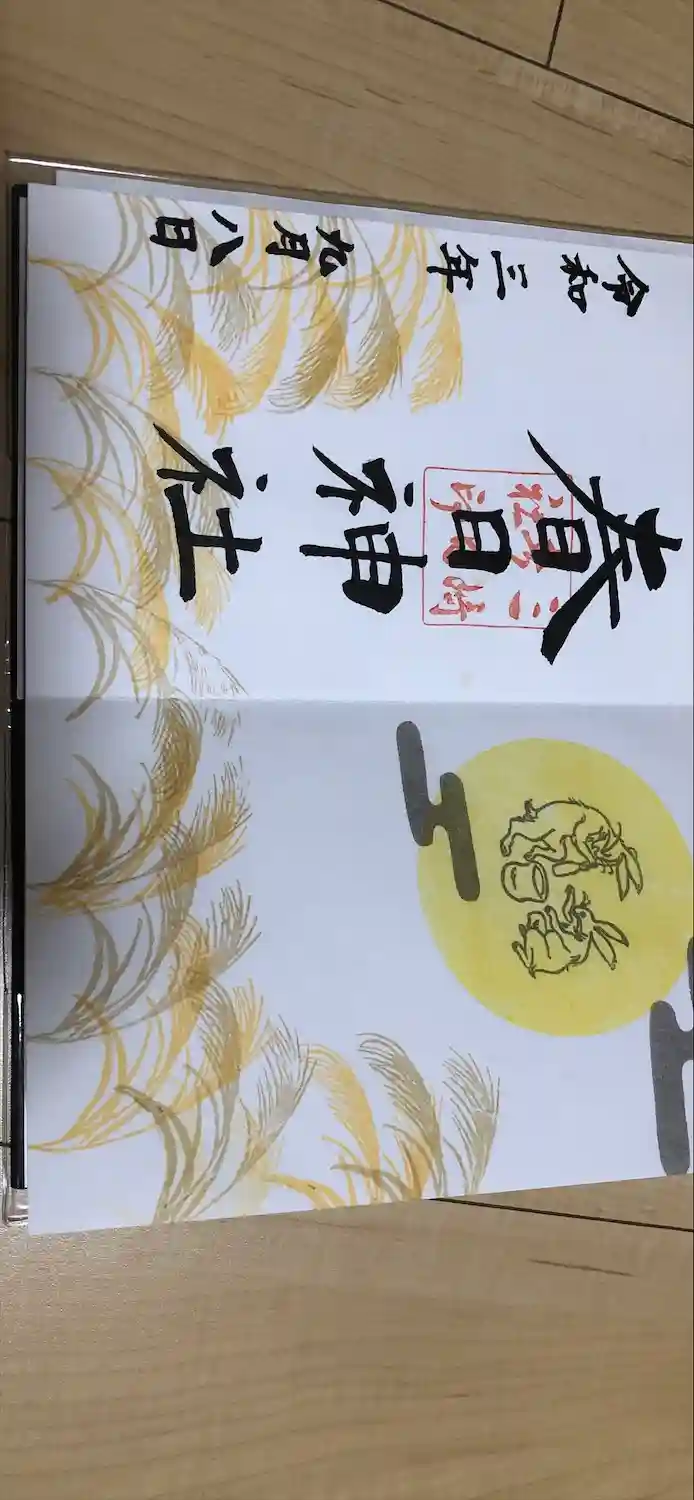 春日神社
三崎
令和三年九月八日